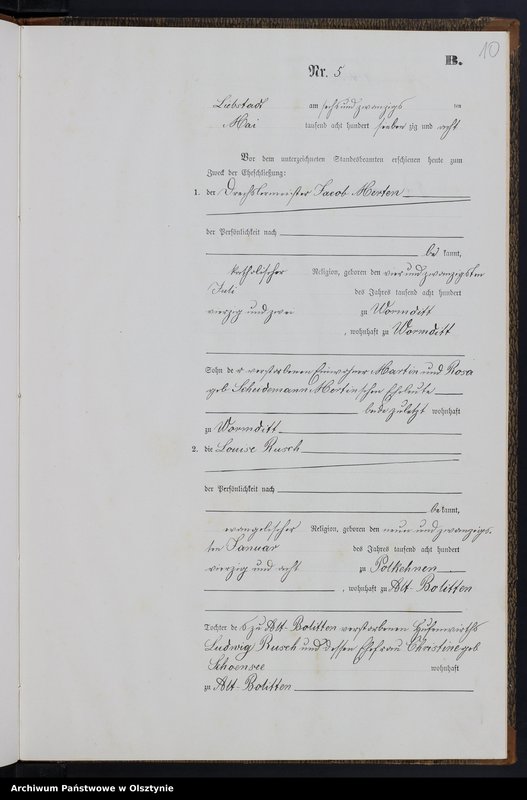 10
B.
Nr. 5
Liebstadt am sechs und zwanzigs ten
Mai tausend acht hundert sieben zig und acht
Vor dem unterzeichneten Standesbeamten erschienen heute zum
Zweck der Eheschließung:
1. der Drechslermeister Jacob Merten
der Persönlichkeit nach
be kannt,
katholischer Religion, geboren den vier und zwanzigsten
Juli des Jahres tausend acht hundert
vierzig und zwei zu Wormditt
, wohnhaft zu Wormditt
Sohn de r verstorbenen Einwohner Martin und Rosa
geb. Scheidemann Mertinschen Eheleute
beide zuletzt wohnhaft
zu Wormditt
2. die Louise Rusch
der Persönlichkeit nach
be kannt,
evangelischer Religion, geboren den neun und zwanzigs-
ten Januar des Jahres tausend acht hundert
vierzig und acht zu Polkehnen
, wohnhaft zu Alt-Bolitten
Tochter de s zu Alt-Bolitten verstorbenen Hufenwirths
Ludwig Rusch und dessen Ehefrau Christine geb
Schoensee wohnhaft
zu Alt-Bolitten
Archiwum Państwowe w Olsztynie